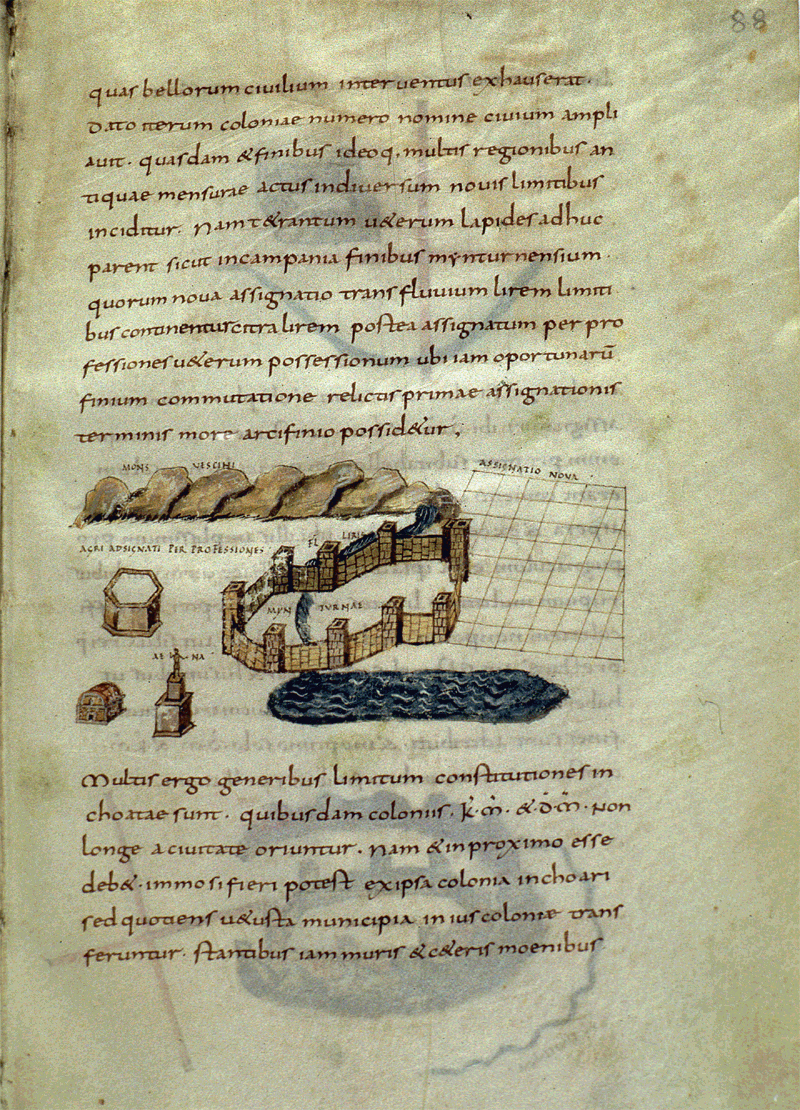 88
quas bellorum civilium interventus exhauserat·
Dato iterum coloniae numero nomine civium ampli
avit· quasdam & finibus ideoq. multis regionibus an
tiquae mensurae actus indiversum novis limitibus
inciditur· Nam t&rantum u&erum lapides adhuc
parent sicut incampania finibus mynturnensium·
quorum nova assignatio trans fluvium lirem limiti
bus continentus citra lirem postea assignatum per pro
fessiones u&erum possessionum ubi iam oportunarū
finium commutatione relictis primae assignationis
terminis more arcifinio possid&ur;
MONS VESCINI
ASSIGNATIO NOVA·
AGRI ADSIGNATI PER PROFESSIONES
FL LIRIS
MYN TURNAE
AE NA
Multis ergo generibus limitum constitutiones in
choatae sunt· quibusdam coloniis· k̄·m̄· & d̄·m̄· Non
longe a civitate oriuntur. Nam & inproximo esse
deb&· immo si fieri potest exipsa colonia inchoari
sed quotiens u&usta municipia in ius coloniæ trans
feruntur· stantibus iam muris & c&eris moenibus